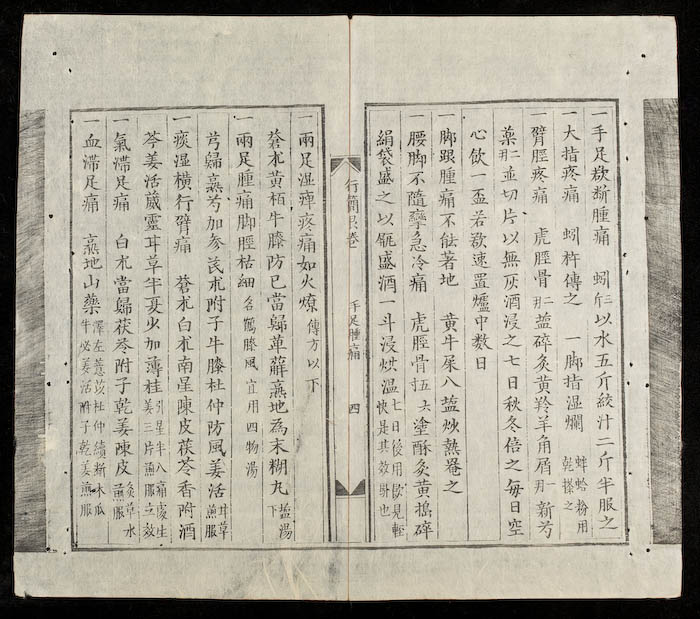 一手足欲断腫痛　蚓以水五斤絞汁二斤半服之
一大指疼痛　蚓杵傅之　一脚指湿爛　蚌蛤粉用乾摻之
臂脛疼痛　虎脛骨二那盐碎灸黄羚羊角屑一那新芍
藥二那並切片以無灰酒浸之七日秋冬倍之每日空
心飲一盃若欲速置爐中数日
一脚跟腫痛不能著地　黄牛屎八盐炒熱卷之
一腰脚不隨攣急冷痛　虎脛骨塗酥灸黄搗碎
絹袋盛之以瓶盛酒一斗浸烘温七日後用飲見輕快是其效驗也
行簡珍卷一　手足腫痛　四
一兩足湿痺疼痛如火燎　傳方以下
蒼朮黄栢牛膝防已當歸萆薢熹地為末糊丸盐湯下
一兩足腫痛脚脛枯細　名鶴膝風宜用四物湯
芎歸熹芍加参茋朮附子牛膝杜仲防風姜活甘草煎服
一痰湿横行臂痛　蒼朮白朮南星陳皮茯苓香附酒
芩姜活葳靈甘草半夏少加薄桂引星牛八痛處生姜三片煎服立效
一氣滞足痛　白朮當歸茯苓附子乾姜陳皮灸草水煎服
一血滞足痛　熹地山藥澤左薏苡杜仲續断木瓜牛必姜活附子乾姜煎服